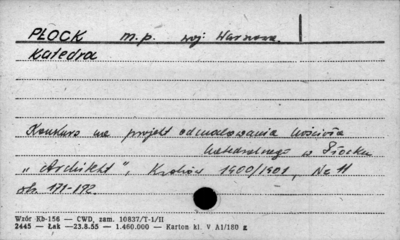 PŁOCK m.p. woj. Warszaw.
Katedra
Konkurs na projekt odmalowania kościoła
katedralnego w Płocku
„Architekt", Kraków 1900/1901, Nr 11
str. 171-172.
Wzór Kb-156 — CWD, zam. 10837/T-1/II
2445 — Łak — 23.8.55 — 1.460.000 — Karton kl. V A1/180 g